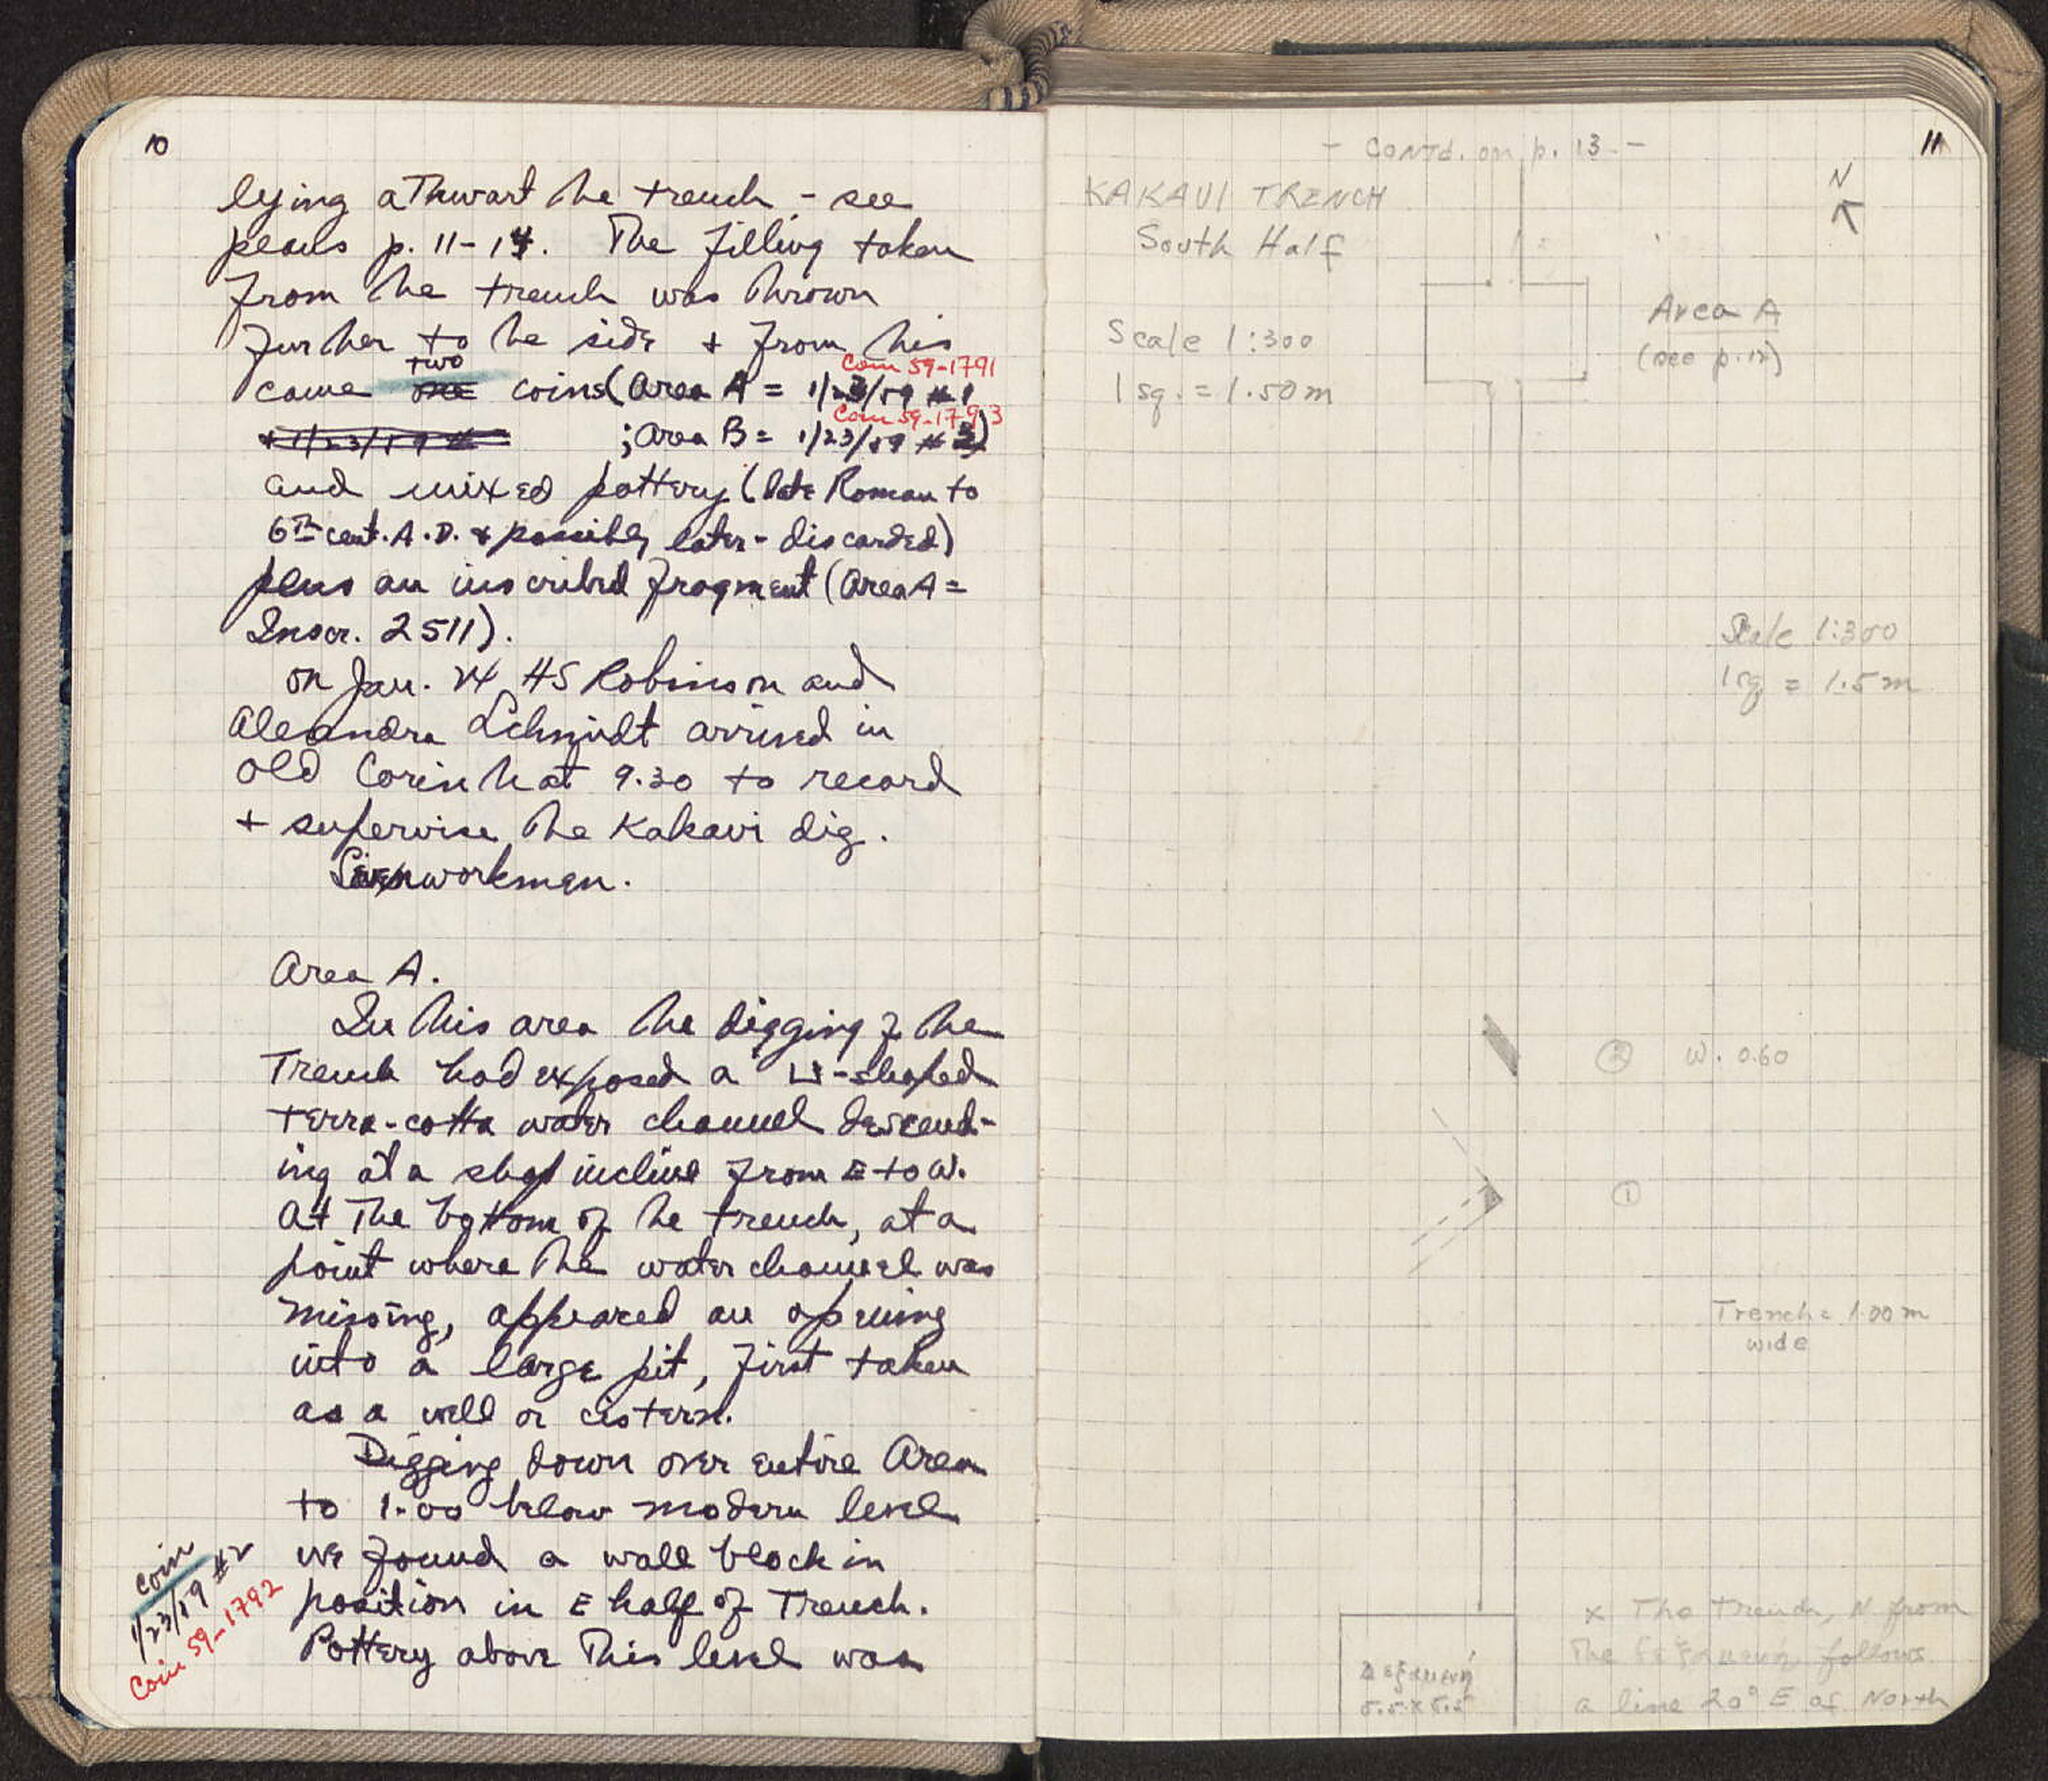 10
lying athwart the trench, - see
plans p. 11-14. The filling taken
from the trench was thrown
further to the side + from this
two
Coin 59-1791
came one coins (Area A = 1/23/59 #1
Coin 59-1793
+ 1/23/59 # ; Area B = 1/23/59 #3)
and mixed pottery (late Roman to
6th cent. A.D. & possibly later - discarded)
plus an inscribed fragment (Area A =
Inscr. 2511).
On Jan. 24 HS Robinson and
Aleandra Schmidt arrived in
Old Corinth at 9.30 to record
+ supervise the Kakavi dig.
workmen.
Area A.
In this area the digging of the
Trench had exposed a U-shaped
terra-cotta water channel descend-
ing at a incline from E to W.
At the bottom of the trench, at a
point where the water channel was
missing, appeared an opening
into a large pit, first taken
as a well or cistern.
Digging down over entire Area
to 1.00 below modern level
we found a wall block in
position in E half of Trench.
Pottery above this level was
coin
1/23/59 #2
Coin 59-1792
11
- Contd. on p. 13 -
N
KAKAVI TRENCH
South Half
Scale 1:300
1 sq. = 1.50 m
Area A
(see p. 12)
Scale 1:300
1 sq = 1.5 m
② W. 0.60
①
Trench = 1.00 m
wide
Δεξαμενή
5.5 x 5.5
x The trench, N from
the δεξαμενή follows
a line 20° E of North